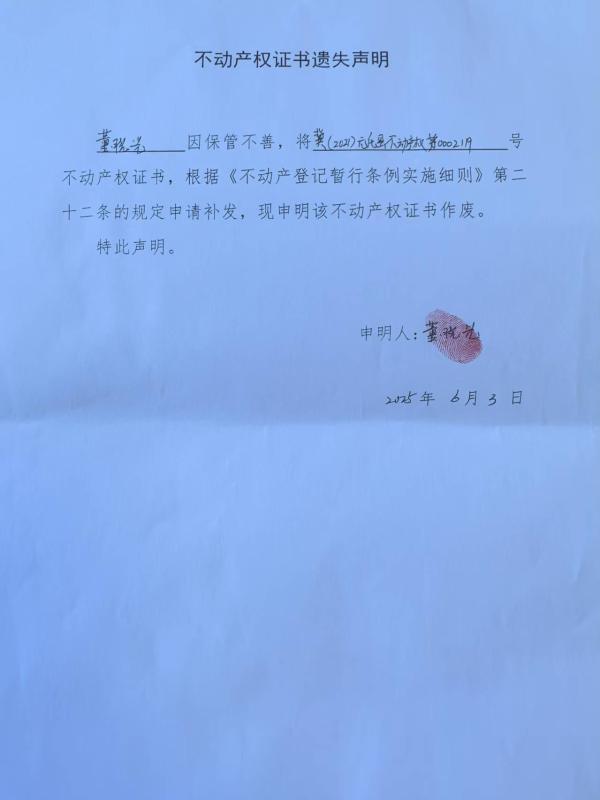 不动产权证书遗失声明
董 因保管不善，将冀(2021)元氏县不动产权第00021 号
不动产权证书，根据《不动产登记暂行条例实施细则》第二
十二条的规定申请补发，现申明该不动产权证书作废。
特此声明。
申明人：董
2025年 6月 3日